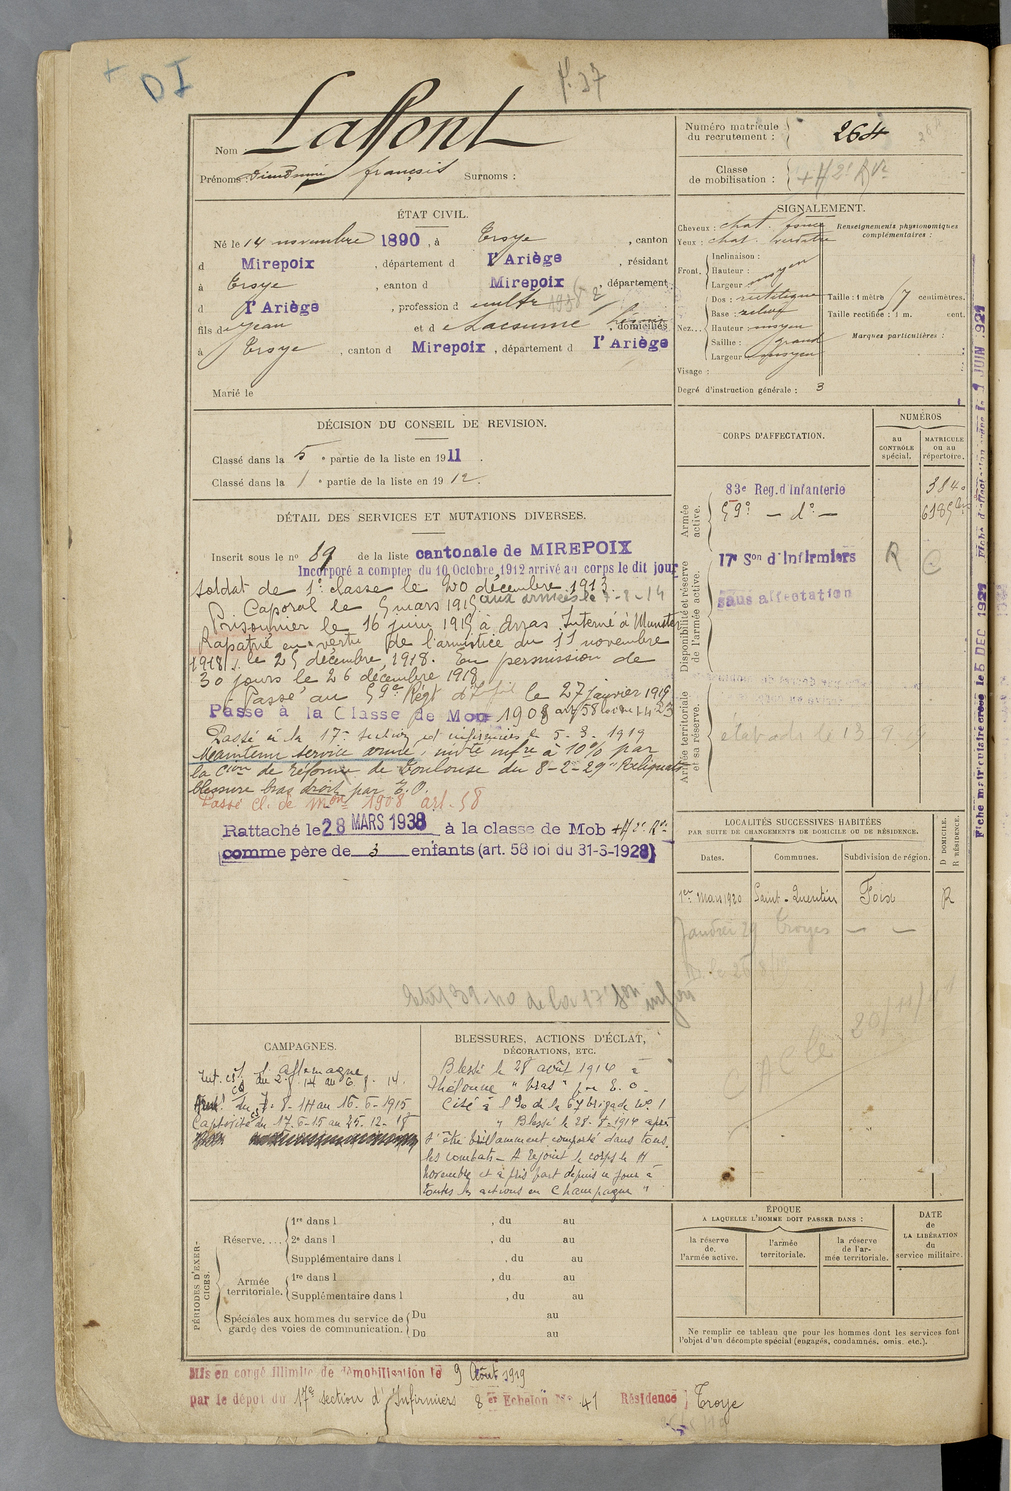 + DI
f. 27
Nom Laffont
Prénoms : Dieudonné françois Surnoms :
Numéro matricule du recrutement : 264
Classe de mobilisation :
ÉTAT CIVIL.
Né le 14 novembre 1890, à Troye, canton
d Mirepoix, département d l'Ariège, résidant
à Troye, canton d Mirepoix, département
d l'Ariège, profession d cultr
fils de Jean et d e Lacsume domiciliés
à Troye, canton d Mirepoix, département d l'Ariège
Marié le
SIGNALEMENT.
Cheveux : chat. foncé
Yeux : chat. verdâtre
Renseignements physionomiques complémentaires :
Front. Inclinaison :
Hauteur : moyen
Largeur :
Nez... Dos : rectiligne
Base : relevé
Hauteur : moyen
Saillie : grand
Largeur : moyen
Taille : 1 mètre 7 centimètres.
Taille rectifiée : 1 m. cent.
Marques particulières :
Visage :
Degré d'instruction générale : 3
DÉCISION DU CONSEIL DE REVISION.
Classé dans la 5 e partie de la liste en 1911.
Classé dans la 1 e partie de la liste en 1912.
CORPS D'AFFECTATION.
NUMÉROS
AU CONTRÔLE spécial.
MATRICULE ou au répertoire.
Armée active.
83e Reg. d'Infanterie 3840
59e — do — 6185
Disponibilité et réserve de l'armée active.
17e Son d'Infirmiers R
sans affectation
Armée territoriale et sa réserve.
DÉTAIL DES SERVICES ET MUTATIONS DIVERSES.
Inscrit sous le no 89 de la liste cantonale de MIREPOIX
Incorporé à compter du 10 Octobre 1912 arrivé au corps le dit jour
Soldat de 1e classe le 20 décembre 1913.
Caporal le 5 mars 1915 aux armées le 7-8-14
Prisonnier le 16 juin 1915 à Arras. Interné à Munster
Rapatrié en vertu de l'armistice du 11 novembre
1918, le 25 décembre 1918. En permission de
30 jours le 26 décembre 1918
Passé au 59e Régt d'Inf le 27 janvier 1919
Passé à la Classe de Mob 1908 art 58 loi du 1-4-23
Passé à la 17e section d'infirmiers le 5-3-1919
Maintenu service armé, invte infre à 10% par
la Cion de réforme de Toulouse du 8-2-29 "Reliquats
blessure bras droit par E.O.
Passé cl. de mon 1908 art. 58
Rattaché le 28 MARS 1938 à la classe de Mob
comme père de 3 enfants (art. 58 loi du 31-3-1928)
LOCALITÉS SUCCESSIVES HABITÉES
PAR SUITE DE CHANGEMENTS DE DOMICILE OU DE RÉSIDENCE.
Dates. Communes. Subdivision de région. D DOMICILE. R RÉSIDENCE.
1er Mars 1920 Saint-Quentin Foix R
Janvier 29 Troyes — —
CAMPAGNES.
Int. cst l'Allemagne
du 2-8-14 au 6-8-14.
du 7-8-14 au 16-6-1915
Captivité du 17-6-15 au 25-12-18
BLESSURES, ACTIONS D'ÉCLAT,
DÉCORATIONS, ETC.
Blessé le 28 août 1914 à
Thelonne "bras" par E. O.
Cité à l'O. de la 67 brigade No 1
" Blessé le 28-8-1914 après
s'être brillamment comporté dans tous
les combats - A rejoint le corps le 11
novembre et a pris part depuis ce jour à
toutes les actions en Champagne "
PÉRIODES D'EXERCICES.
Réserve.... 1re dans l , du au
2e dans l , du au
Supplémentaire dans l , du au
Armée territoriale. 1re dans l , du au
Supplémentaire dans l , du au
Spéciales aux hommes du service de garde des voies de communication. Du au
Du au
ÉPOQUE
A LAQUELLE L'HOMME DOIT PASSER DANS :
la réserve de l'armée active.
l'armée territoriale.
la réserve de l'armée territoriale.
DATE de LA LIBÉRATION du service militaire.
Ne remplir ce tableau que pour les hommes dont les services font
l'objet d'un décompte spécial (engagés, condamnés, omis, etc.).
Mis en congé illimité de démobilisation le 9 Août 1919
par le dépôt du 17e section d'Infirmiers 8e Echelon No 41 Résidence Troye